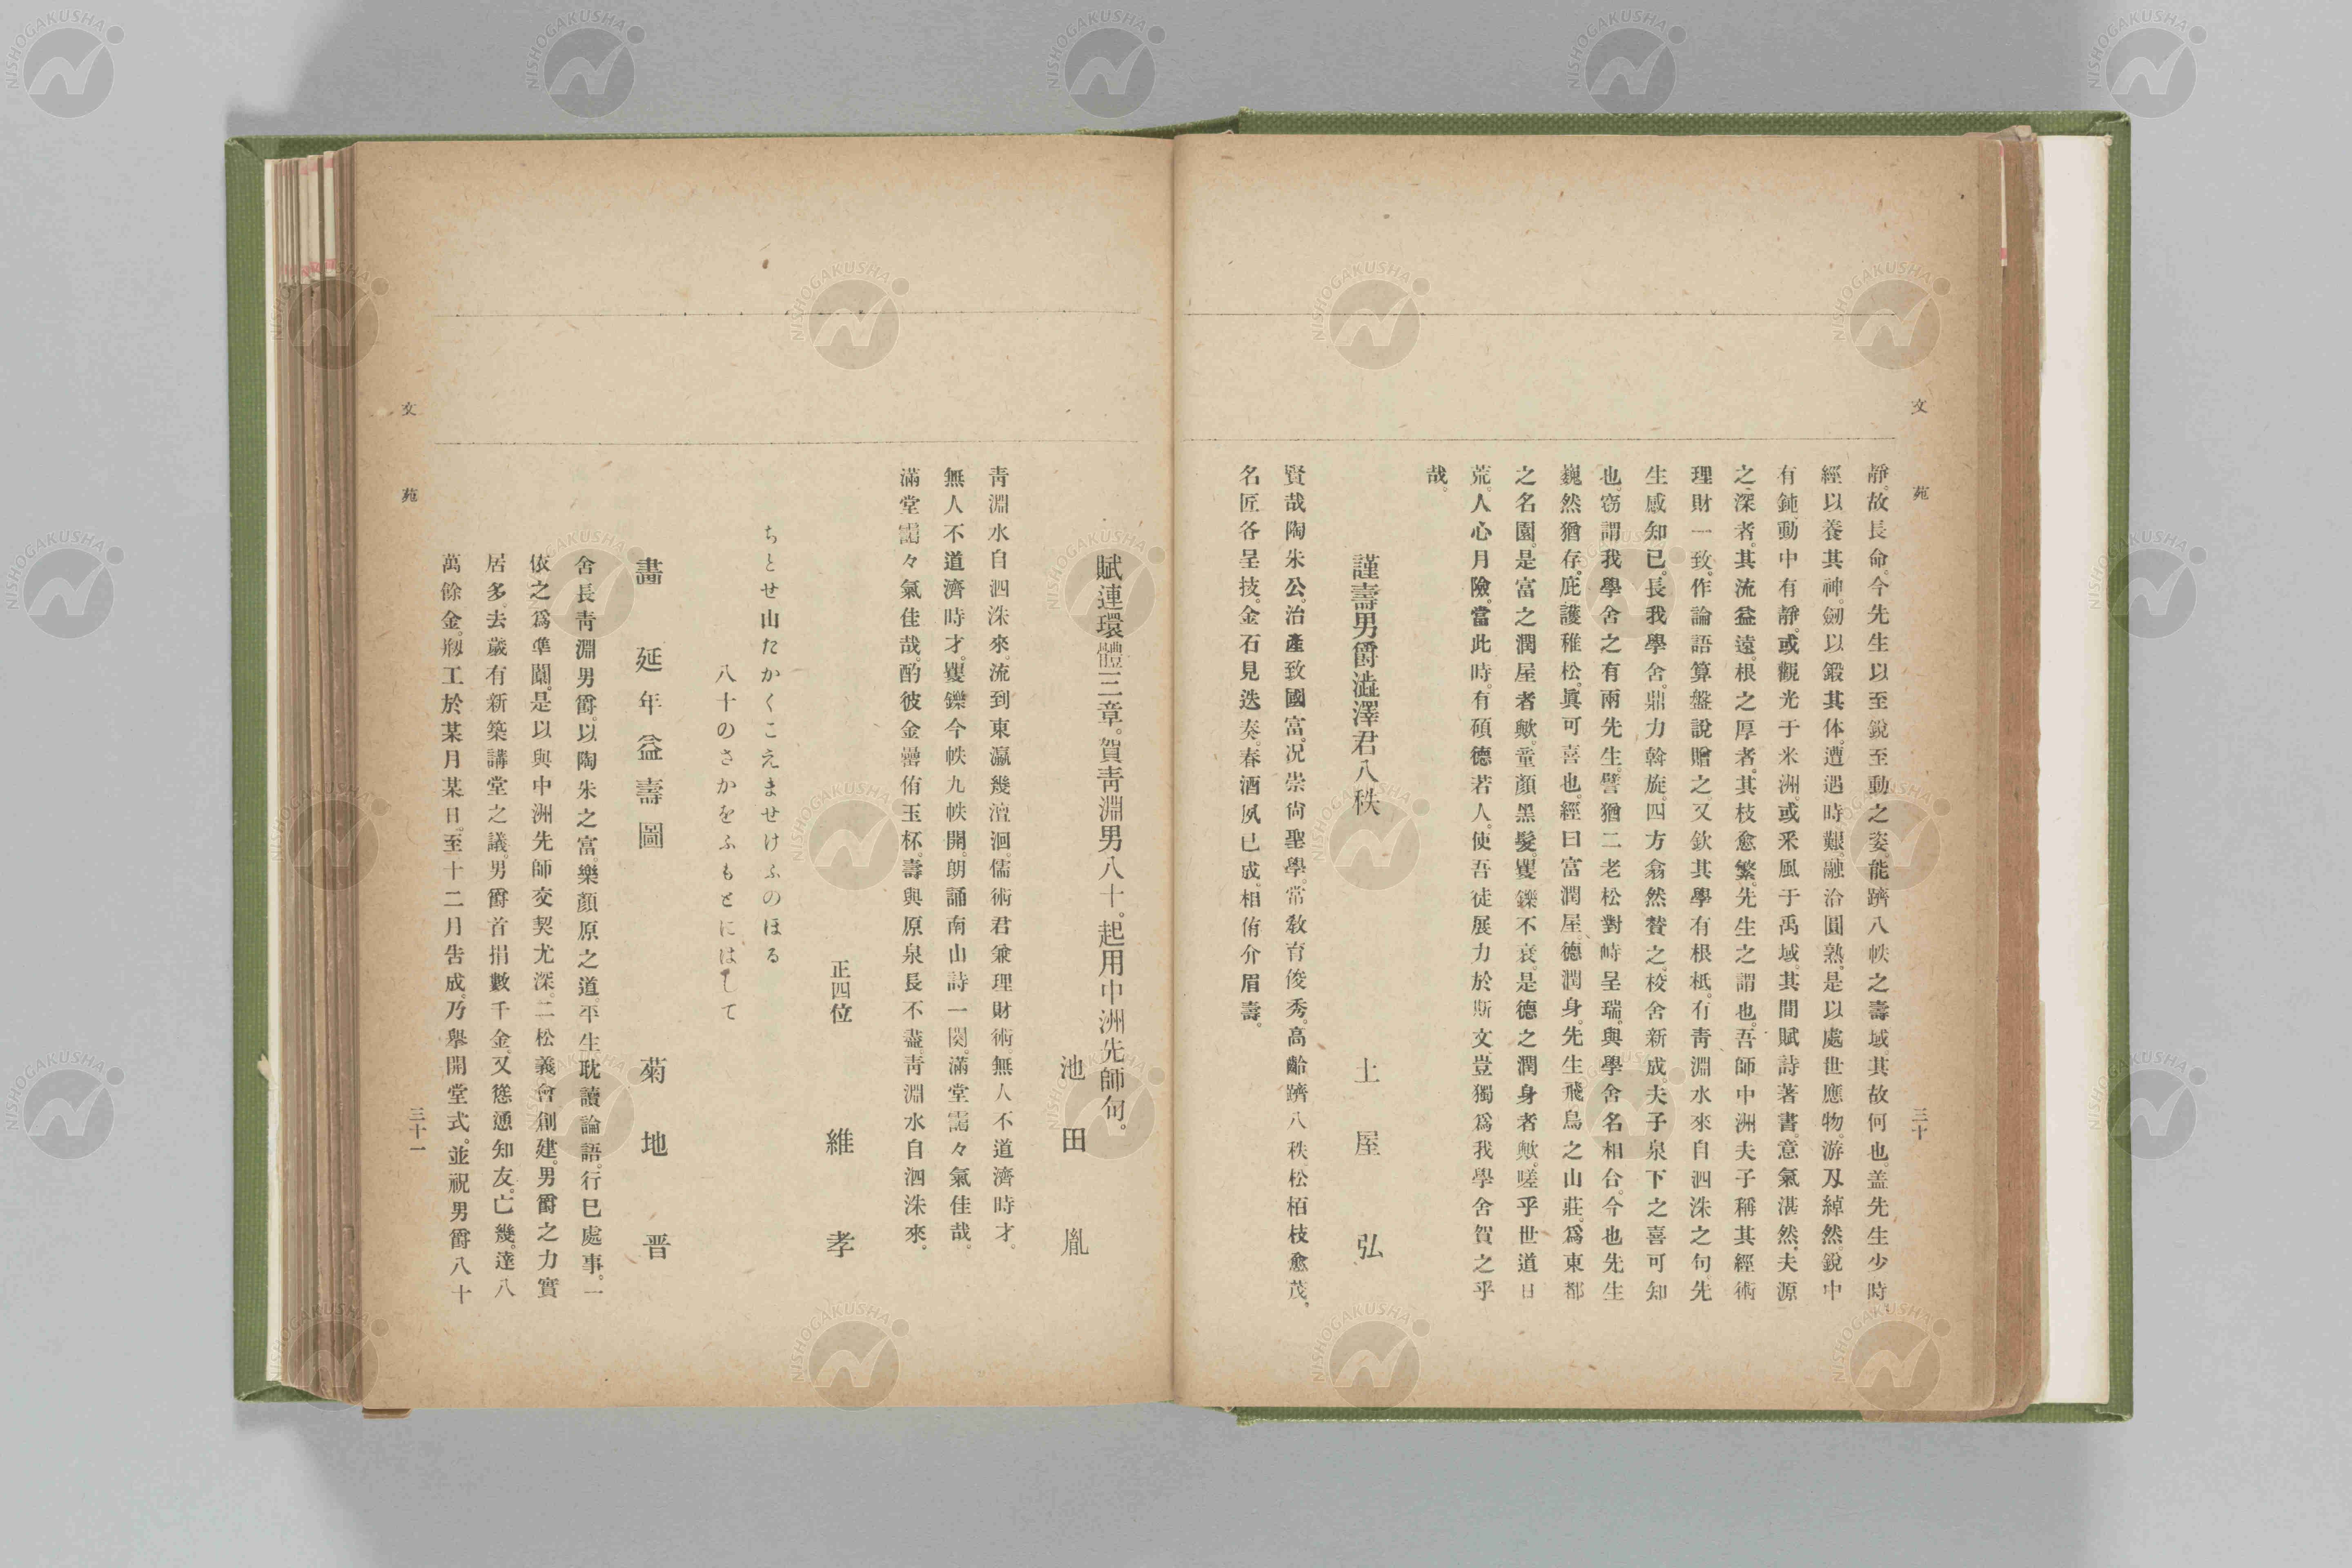 文苑
三十
靜。故長命。今先生以至銳至動之姿。能躋八帙之壽域。其故何也。盖先生少時。
經以養其神。劒以鍛其体。遭遇時艱。融洽圓熟。是以處世應物。游刄綽然。銳中
有鈍。動中有靜。或觀光于米洲。或釆風于禹域。其間賦詩著書。意氣湛然。夫源
之深者。其流益遠。根之厚者。其枝愈繁。先生之謂也。吾師中洲夫子稱其經術
理財一致。作論語算盤說贈之。又欽其學有根柢。有靑淵水來自泗洙之句。先
生感知已。長我學舍。鼎力斡旋。四方翕然贊之。校舍新成。夫子泉下之喜可知
也。窃謂我學舍之有兩先生。譬猶二老松對峙呈瑞。與學舍名相合。今也先生
巍然猶存。庇護稚松。眞可喜也。經曰富潤屋。德潤身。先生飛鳥之山莊。爲東都
之名園。是富之潤屋者歟。童顏黑髮。矍鑠不衰。是德之潤身者歟。嗟乎世道日
荒。人心月險。當此時。有碩德若人。使吾徒展力於斯文。豈獨爲我學舍賀之乎
哉。
謹壽男爵澁澤君八秩
土屋弘
賢哉陶朱公。治產致國富。况崇尙聖學。常敎育俊秀。高齡躋八秩。松栢枝愈茂。
名匠各呈技。金石見迭奏。春酒夙已成。相侑介眉壽。
賦連環體三章。賀靑淵男八十。起用中洲先師句。
池田胤
靑淵水自泗洙來。流到東瀛幾澶洄。儒術君兼理財術。無人不道濟時才。
無人不道濟時才。矍鑠今帙九帙開。朗誦南山詩一闋。滿堂靄々氣佳哉。
滿堂靄々氣佳哉。酌彼金罍侑玉杯。壽與原泉長不盡。靑淵水自泗洙來。
正四位 維孝
ちとせ山たかくこえませけふのほる
八十のさかをふもとにはして
畵延年益壽圖
菊地晋
舍長靑淵男爵。以陶朱之富。樂顏原之道。平生耽讀論語。行已處事。一
依之爲準闑。是以與中洲先師交契尤深。二松義會創建。男爵之力實
居多。去歲有新築講堂之議。男爵首捐數千金。又慫慂知友。亡幾。達八
萬餘金。剏工於某月某日。至十二月告成。乃擧開堂式。並祝男爵八十
文苑
三十一